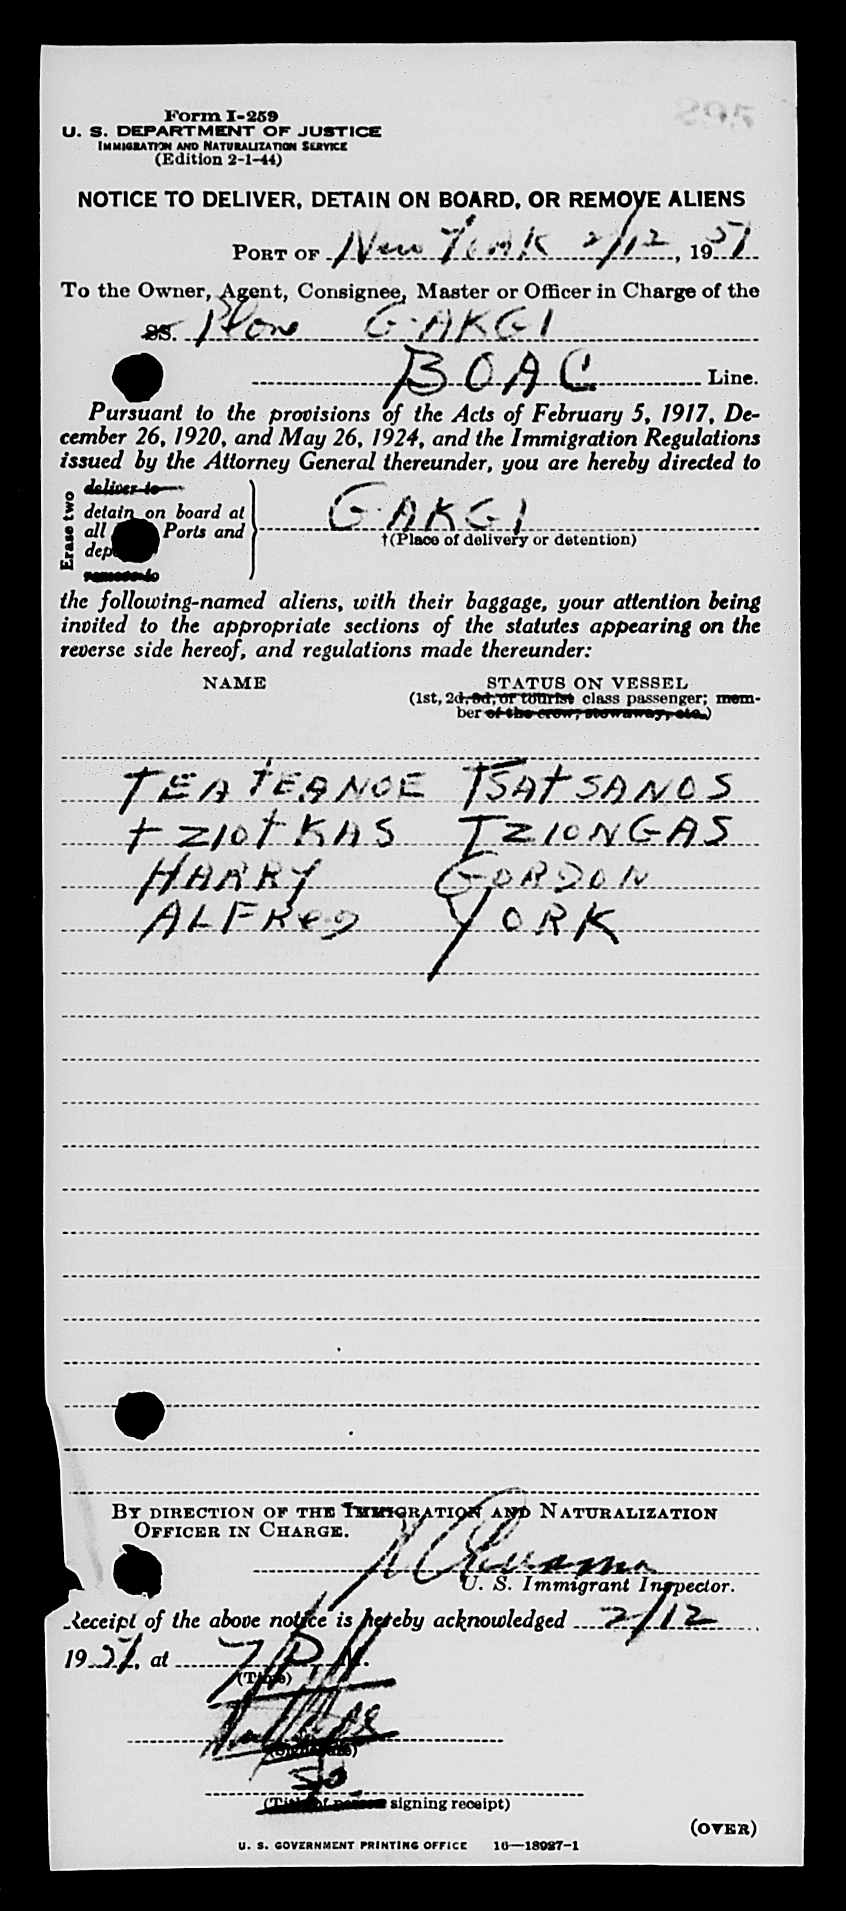 Form I-259
U. S. DEPARTMENT OF JUSTICE
IMMIGRATION AND NATURALIZATION SERVICE
(Edition 2-1-44)
NOTICE TO DELIVER, DETAIN ON BOARD, OR REMOVE ALIENS
PORT OF New York 2/12, 1951
To the Owner, Agent, Consignee, Master or Officer in Charge of the
SS. Plane G-AKGI
BOAC Line.
Pursuant to the provisions of the Acts of February 5, 1917, De-
cember 26, 1920, and May 26, 1924, and the Immigration Regulations
issued by the Attorney General thereunder, you are hereby directed to
Erase two
deliver to
detain on board at
all Ports and
G-AKGI
†(Place of delivery or detention)
remove to
the following-named aliens, with their baggage, your attention being
invited to the appropriate sections of the statutes appearing on the
reverse side hereof, and regulations made thereunder:
NAME STATUS ON VESSEL
(1st, 2d, 3d, or tourist class passenger; mem-
ber of the crew, stowaway, etc.)
TEATEANOE TSATSANOS
TZIOTKAS TZIONGAS
HARRY GORDON
ALFRED YORK
BY DIRECTION OF THE IMMIGRATION AND NATURALIZATION
OFFICER IN CHARGE.
U. S. Immigrant Inspector.
Receipt of the above notice is hereby acknowledged 2/12
1951, at 7 P. M.
(Time)
(Signature)
(Title of person signing receipt)
(OVER)
U. S. GOVERNMENT PRINTING OFFICE 16—18987-1